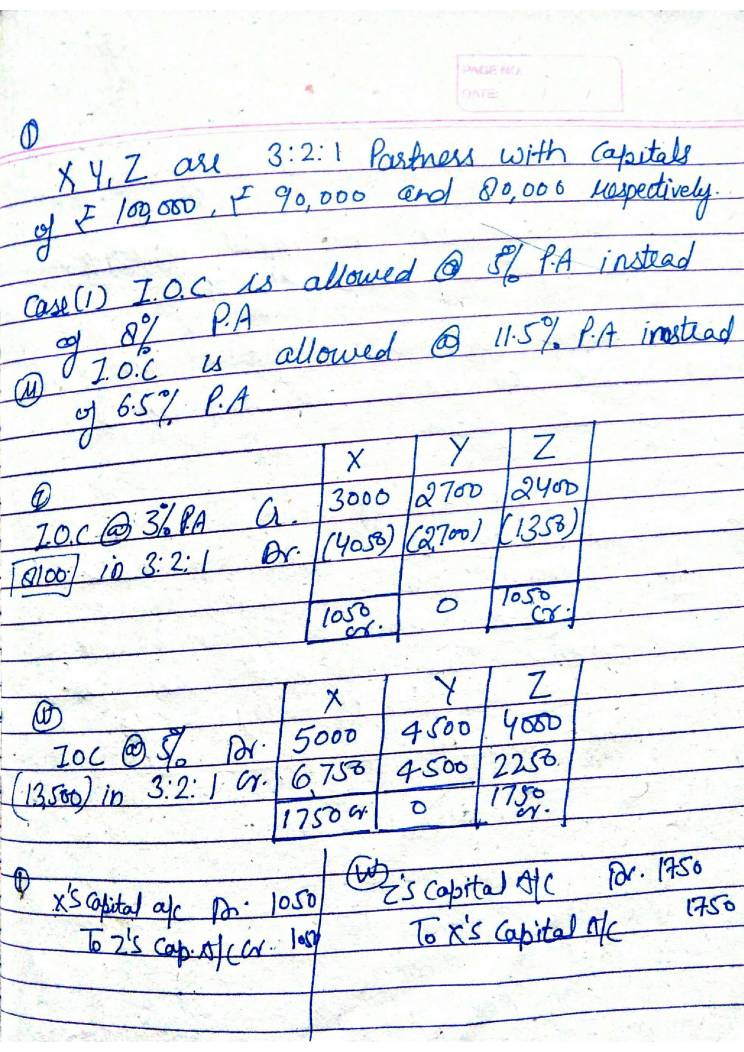 PAGE NO.
DATE / /
①
X Y, Z are 3:2:1 Partners with Capitals
of ₹ 100,000, ₹ 90,000 and 80,000 respectively.
Case (1) I.O.C is allowed @ 5% P.A instead
of 8% P.A
(ii) I.O.C is allowed @ 11.5% P.A instead
of 6.5% P.A
X Y Z
①
I.O.C @ 3% P.A Cr. 3000 2700 2400
8100 in 3:2:1 Dr. (4050) (2,700) (1350)
1050 cr. 0 1050 cr.
X Y Z
(ii)
IOC @ 5% Dr. 5000 4500 4000
(13,500) in 3:2:1 Cr. 6,750 4500 2250
1750 cr. 0 1750 cr.
①
X's Capital a/c Dr. 1050
To Z's Cap. A/c Cr. 1050
(ii)
Z's Capital A/C Dr. 1750
To X's Capital A/c 1750